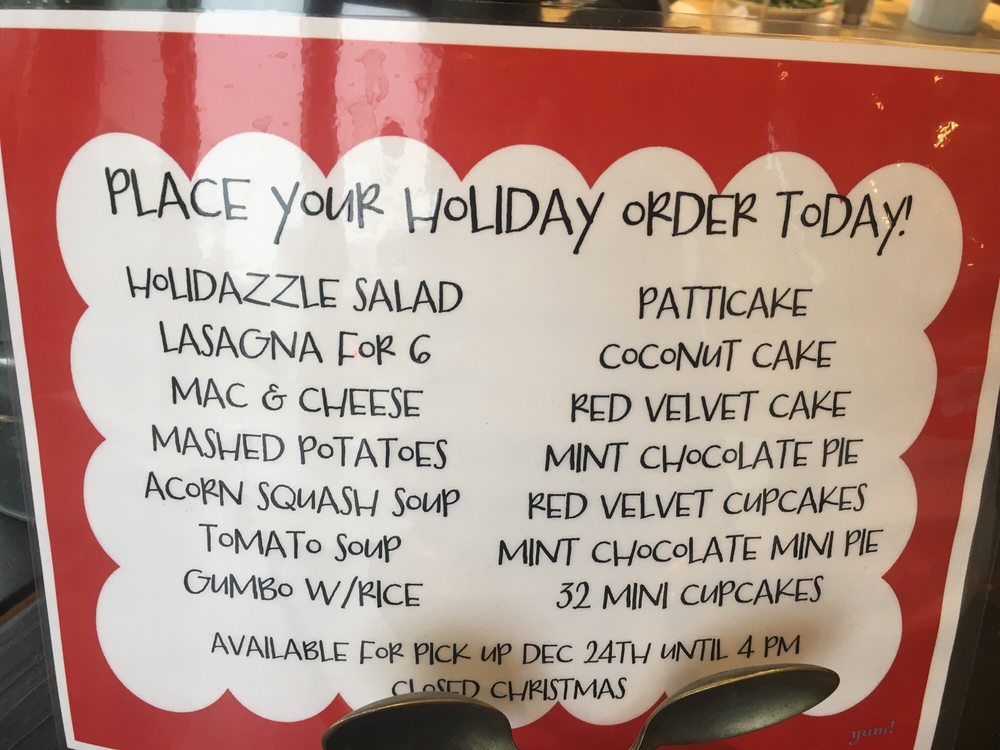 PLACE YOUR HOLIDAY ORDER TODAY!
HOLIDAZZLE SALAD
LASAGNA FOR 6
MAC & CHEESE
MASHED POTATOES
ACORN SQUASH SOUP
TOMATO SOUP
GUMBO W/RICE
PATTICAKE
COCONUT CAKE
RED VELVET CAKE
MINT CHOCOLATE PIE
RED VELVET CUPCAKES
MINT CHOCOLATE MINI PIE
32 MINI CUPCAKES
AVAILABLE FOR PICK UP DEC 24TH UNTIL 4 PM
CLOSED CHRISTMAS
yum!